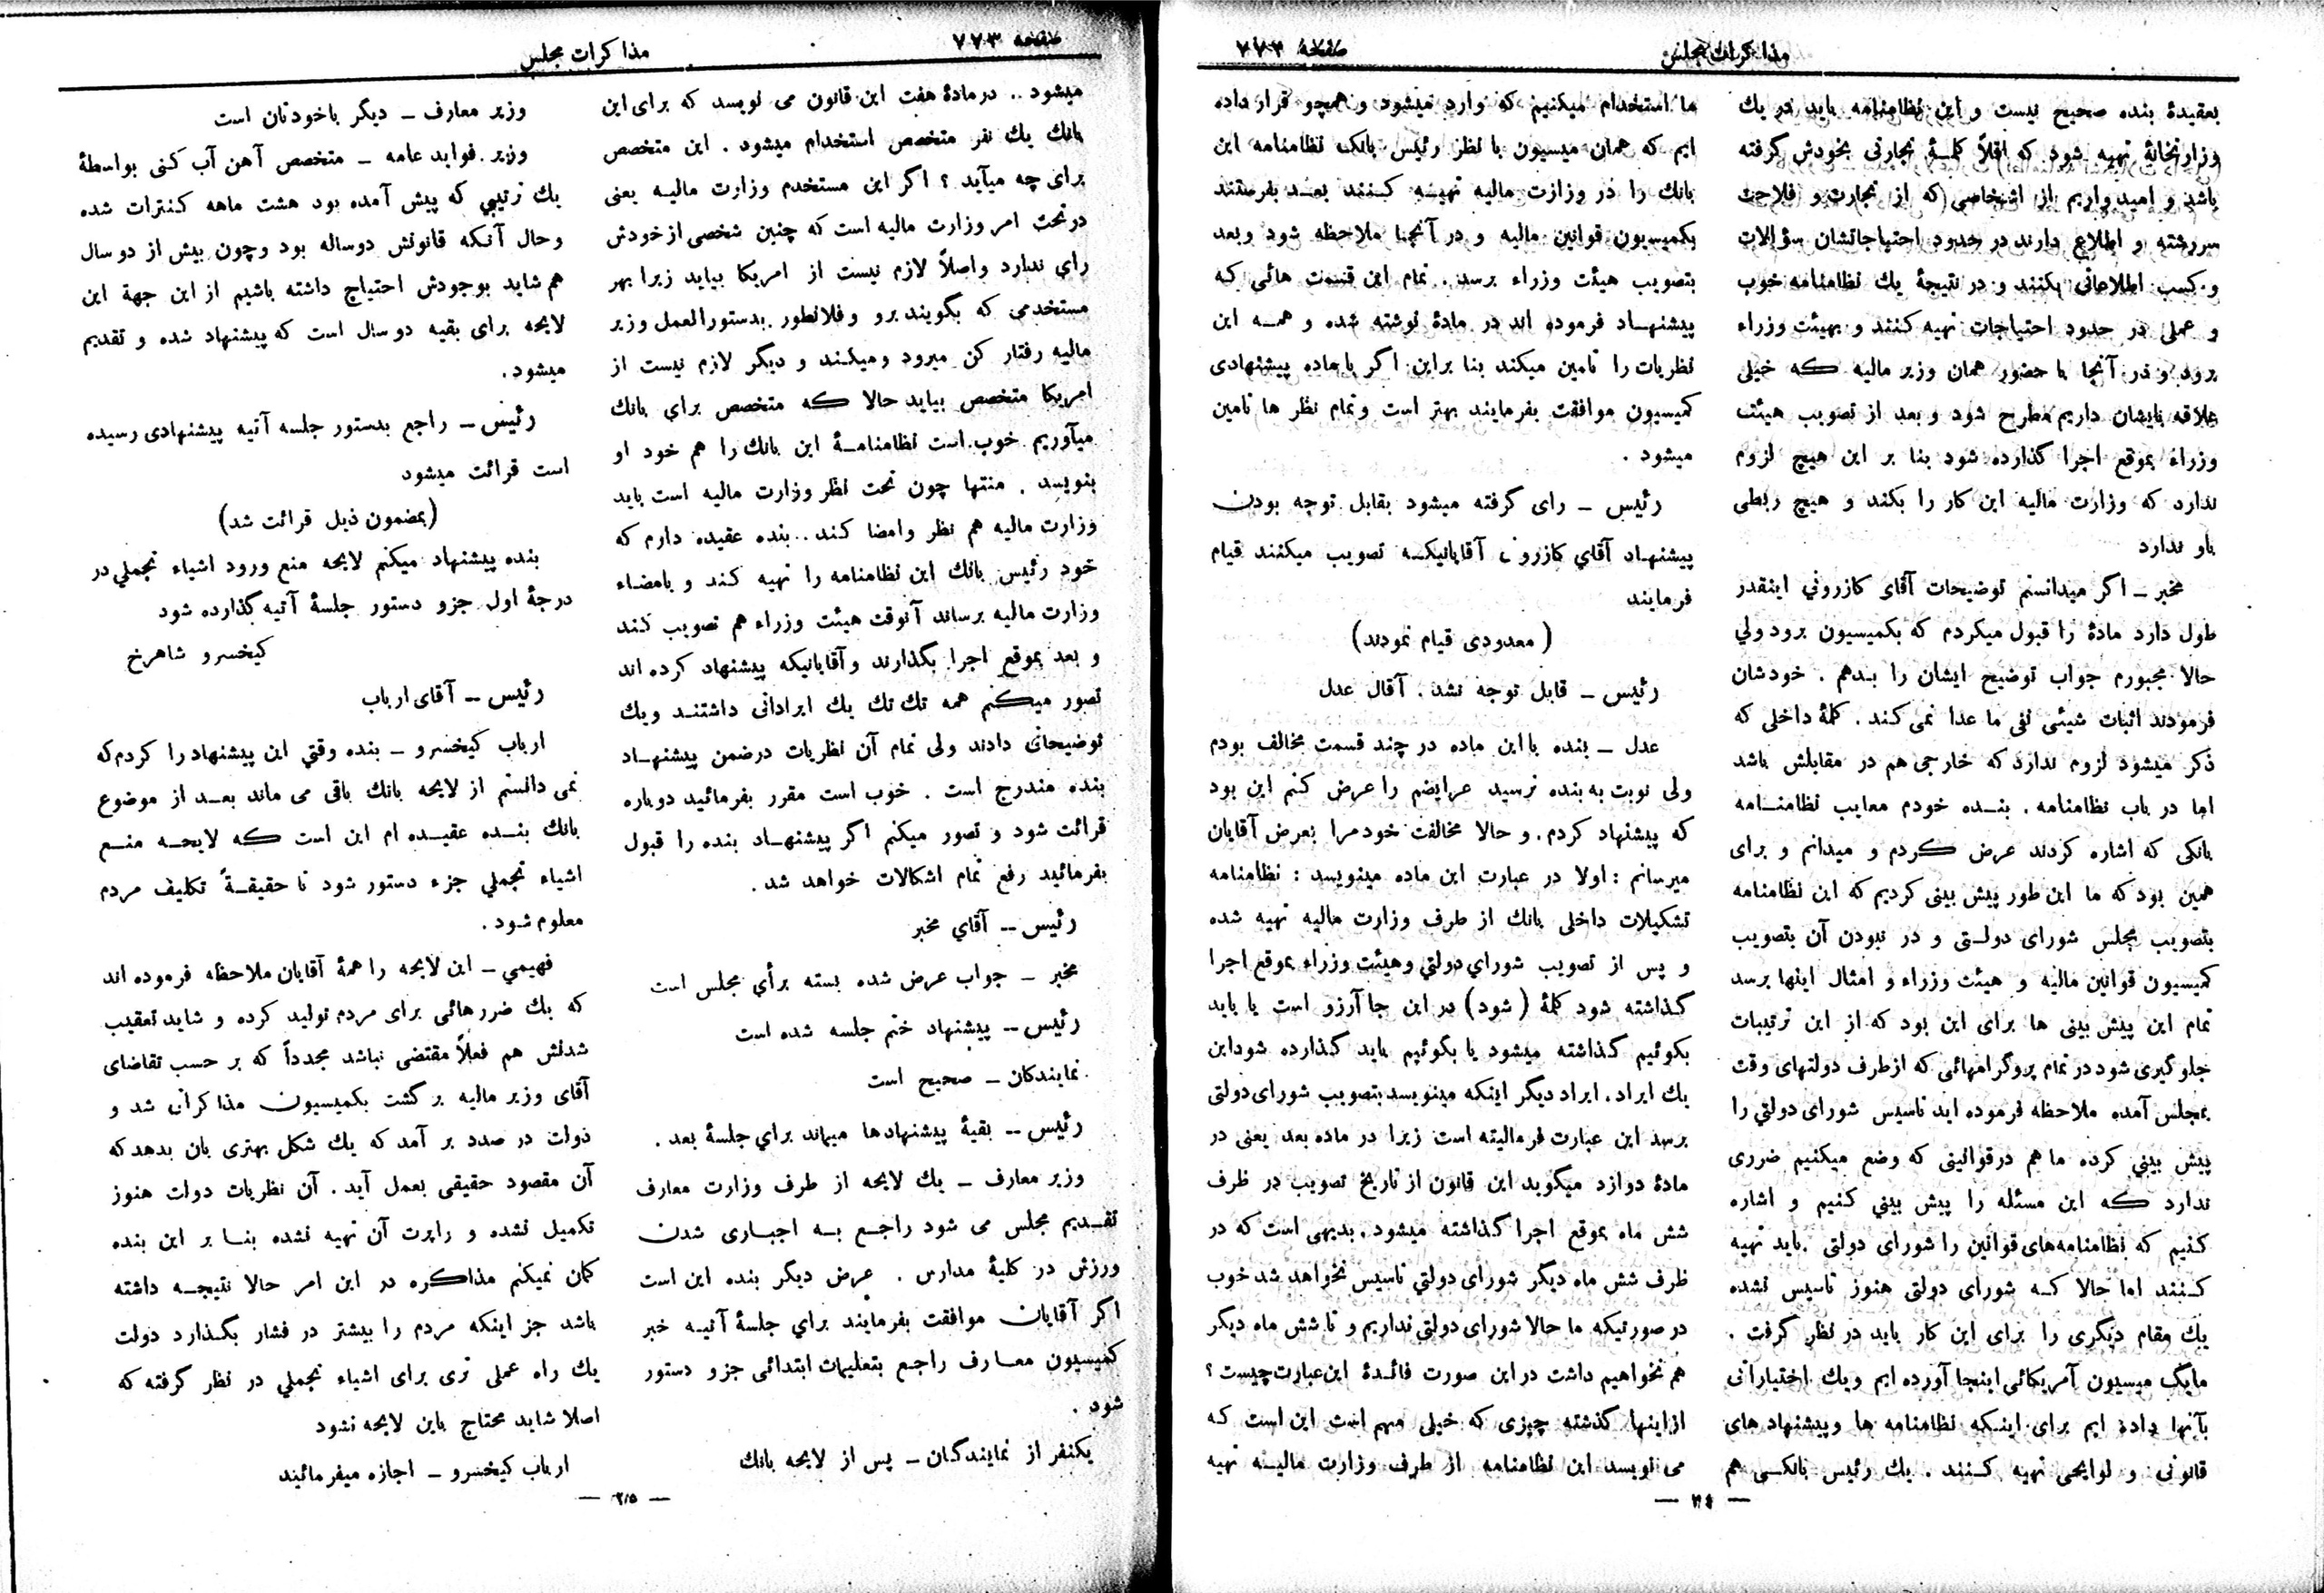 مذاکرات مجلس
صفحه ۷۷۲
بعقیدهٔ بنده صحیح نیست و این نظامنامه باید در یك
وزارتخانهٔ تهیه شود که اقلاً کلمهٔ تجارتی بخودش گرفته
باشد و امیدواریم از اشخاصی که از تجارت و فلاحت
سررشته و اطلاع دارند در حدود احتیاجاتشان سؤالات
و کسب اطلاعاتی بکنند و در نتیجهٔ یك نظامنامه خوب
و عملی در حدود احتیاجات تهیه کنند و بهیئت وزراء
برود و در آنجا با حضور همان وزیر مالیه که خیلی
علاقه بایشان داریم مطرح شود و بعد از تصویب هیئت
وزراء بموقع اجرا گذارده شود بنا بر این هیچ لزوم
ندارد که وزارت مالیه این کار را بکند و هیچ ربطی
باو ندارد
مخبر ــ اگر میدانستم توضیحات آقای کازرونی اینقدر
طول دارد مادهٔ را قبول میکردم که بکمیسیون برود ولي
حالا مجبورم جواب توضیح ایشان را بدهم . خودشان
فرمودند اثبات شیئی نفی ما عدا نمی کند . کلمهٔ داخلی که
ذکر میشود لزوم ندارد که خارجی هم در مقابلش باشد
اما در باب نظامنامه . بنده خودم معایب نظامنامه
بانکی که اشاره کردند عرض کردم و میدانم و برای
همین بود که ما این طور پیش بینی کردیم که این نظامنامه
بتصویب مجلس شورای دولتی و در نبودن آن بتصویب
کمیسیون قوانین مالیه و هیئت وزراء و امثال اینها برسد
تمام این پیش بینی ها برای این بود که از این ترتیبات
جلوگیری شود در تمام پروگرامهائی که از طرف دولتهای وقت
بمجلس آمده ملاحظه فرموده اید تاسیس شورای دولتي را
پیش بیني کرده ما هم در قوانینی که وضع میکنیم ضرری
ندارد که این مسئله را پیش بیني کنیم و اشاره
کنیم که نظامنامه‌های قوانین را شورای دولتی باید تهیه
کنند اما حالا که شورای دولتی هنوز تاسیس نشده
یك مقام دیگری را برای این کار باید در نظر گرفت .
مایك میسیون آمریکائی اینجا آورده ایم و یك اختیاراتی
بآنها داده ایم برای اینکه نظامنامه ها و پیشنهاد های
قانونی و لوایحی تهیه کنند . یك رئیس بانکی هم
ما استخدام میکنیم که وارد میشود و همچو قرار داده
ایم که همان میسیون با نظر رئیس بانك نظامنامه این
بانك را در وزارت مالیه تهیه کنند بعد بفرستند
بکمیسیون قوانین مالیه و در آنجا ملاحظه شود و بعد
بتصویب هیئت وزراء برسد . تمام این قسمت هائی که
پیشنهاد فرموده اند در مادهٔ نوشته شده و همه این
نظریات را تامین میکند بنا براین اگر با ماده پیشنهادی
کمیسیون موافقت بفرمایند بهتر است و تمام نظر ها تامین
میشود .
رئیس ــ رای گرفته میشود بقابل توجه بودن
پیشنهاد آقای کازرونی آقایانیکه تصویب میکنند قیام
فرمایند
( معدودی قیام نمودند)
رئیس ــ قابل توجه نشد . آقای عدل
عدل ــ بنده با این ماده در چند قسمت مخالف بودم
ولی نوبت به بنده نرسید عرایضم را عرض کنم این بود
که پیشنهاد کردم . و حالا مخالفت خودمرا بعرض آقایان
میرسانم : اولا در عبارت این ماده مینویسد : نظامنامه
تشکیلات داخلی بانك از طرف وزارت مالیه تهیه شده
و پس از تصویب شورای دولتي و هیئت وزراء بموقع اجرا
گذاشته شود کلمهٔ ( شود) در این جا آرزو است یا باید
بگوئیم گذاشته میشود یا بگوئیم باید گذارده شود این
یك ایراد . ایراد دیگر اینکه مینویسد بتصویب شورای دولتی
برسد این عبارت فرمالیته است زیرا در ماده بعد یعنی در
مادهٔ دوازد میگوید این قانون از تاریخ تصویب در ظرف
شش ماه بموقع اجرا گذاشته میشود . بدیهی است که در
ظرف شش ماه دیگر شورای دولتي تاسیس نخواهد شد خوب
در صورتیکه ما حالا شورای دولتي نداریم و تا شش ماه دیگر
هم نخواهیم داشت در این صورت فائدهٔ این عبارت چیست ؟
از اینها گذشته چیزی که خیلی مهم است این است که
می نویسد این نظامنامه از طرف وزارت مالیه تهیه
صفحه ۷۷۳
مذاکرات مجلس
میشود .. در مادهٔ هفت این قانون می نویسد که برای این
بانك یك نفر متخصص استخدام میشود . این متخصص
برای چه میآید ؟ اگر این مستخدم وزارت مالیه یعنی
در تحت امر وزارت مالیه است که چنین شخصی از خودش
راي ندارد و اصلاً لازم نیست از امریکا بیاید زیرا بهر
مستخدمی که بگویند برو و فلانطور بدستورالعمل وزیر
مالیه رفتار کن میرود و میکند و دیگر لازم نیست از
امریکا متخصص بیاید حالا که متخصص برای بانك
میآوریم خوب است نظامنامهٔ این بانك را هم خود او
بنویسد . منتها چون تحت نظر وزارت مالیه است باید
وزارت مالیه هم نظر وامضا کند .. بنده عقیده دارم که
خود رئیس بانك این نظامنامه را تهیه کند و بامضاء
وزارت مالیه برساند آنوقت هیئت وزراء هم تصویب کند
و بعد بموقع اجرا بگذارند و آقایانیکه پیشنهاد کرده اند
تصور میکنم همه تك تك یك ایراداتی داشتند و یك
توضیحاتی دادند ولی تمام آن نظریات در ضمن پیشنهاد
بنده مندرج است . خوب است مقرر بفرمائید دوباره
قرائت شود و تصور میکنم اگر پیشنهاد بنده را قبول
بفرمائید رفع تمام اشکالات خواهد شد .
رئیس ــ آقاي مخبر
مخبر ــ جواب عرض شده بسته برأي مجلس است
رئیس ــ پیشنهاد ختم جلسه شده است
نمایندگان ــ صحیح است
رئیس ــ بقیهٔ پیشنهادها میماند براي جلسهٔ بعد .
وزیر معارف ــ یك لایحه از طرف وزارت معارف
تقدیم مجلس می شود راجع به اجباری شدن
ورزش در کلیهٔ مدارس . عرض دیگر بنده این است
اگر آقایان موافقت بفرمایند براي جلسهٔ آتیه خبر
کمیسیون معارف راجع بتعلیمات ابتدائی جزو دستور
شود .
یکنفر از نمایندگان ــ پس از لایحه بانك
وزیر معارف ــ دیگر باخودتان است
وزیر فواید عامه ــ متخصص آهن آب کنی بواسطهٔ
یك ترتیبي که پیش آمده بود هشت ماهه کنترات شده
و حال آنکه قانونش دوساله بود و چون بیش از دو سال
هم شاید بوجودش احتیاج داشته باشیم از این جهة این
لایحه برای بقیه دو سال است که پیشنهاد شده و تقدیم
میشود .
رئیس ــ راجع بدستور جلسه آتیه پیشنهادی رسیده
است قرائت میشود
(بمضمون ذیل قرائت شد)
بنده پیشنهاد میکنم لایحه منع ورود اشیاء تجملي در
درجهٔ اول جزو دستور جلسهٔ آتیه گذارده شود
کیخسرو شاهرخ
رئیس ــ آقای ارباب
ارباب کیخسرو ــ بنده وقتي این پیشنهاد را کردم که
نمی دانستم از لایحه بانك باقی می ماند بعد از موضوع
بانك بنده عقیده ام این است که لایحه منع
اشیاء تجملي جزء دستور شود تا حقیقةً تکلیف مردم
معلوم شود .
فهیمي ــ این لایحه را همهٔ آقایان ملاحظه فرموده اند
که یك ضررهائی برای مردم تولید کرده و شاید تعقیب
شدنش هم فعلاً مقتضی نباشد مجدداً که بر حسب تقاضای
آقای وزیر مالیه بر گشت بکمیسیون مذاکرانی شد و
دولت در صدد بر آمد که یك شکل بهتری بان بدهد که
آن مقصود حقیقی بعمل آید . آن نظریات دولت هنوز
تکمیل نشده و راپرت آن تهیه نشده بنا بر این بنده
گمان نمیکنم مذاکره در این امر حالا نتیجه داشته
باشد جز اینکه مردم را بیشتر در فشار بگذارد دولت
یك راه عملی تری برای اشیاء تجملي در نظر گرفته که
اصلا شاید محتاج باین لایحه نشود
ارباب کیخسرو ــ اجازه میفرمائید
— ۲۱۵ —